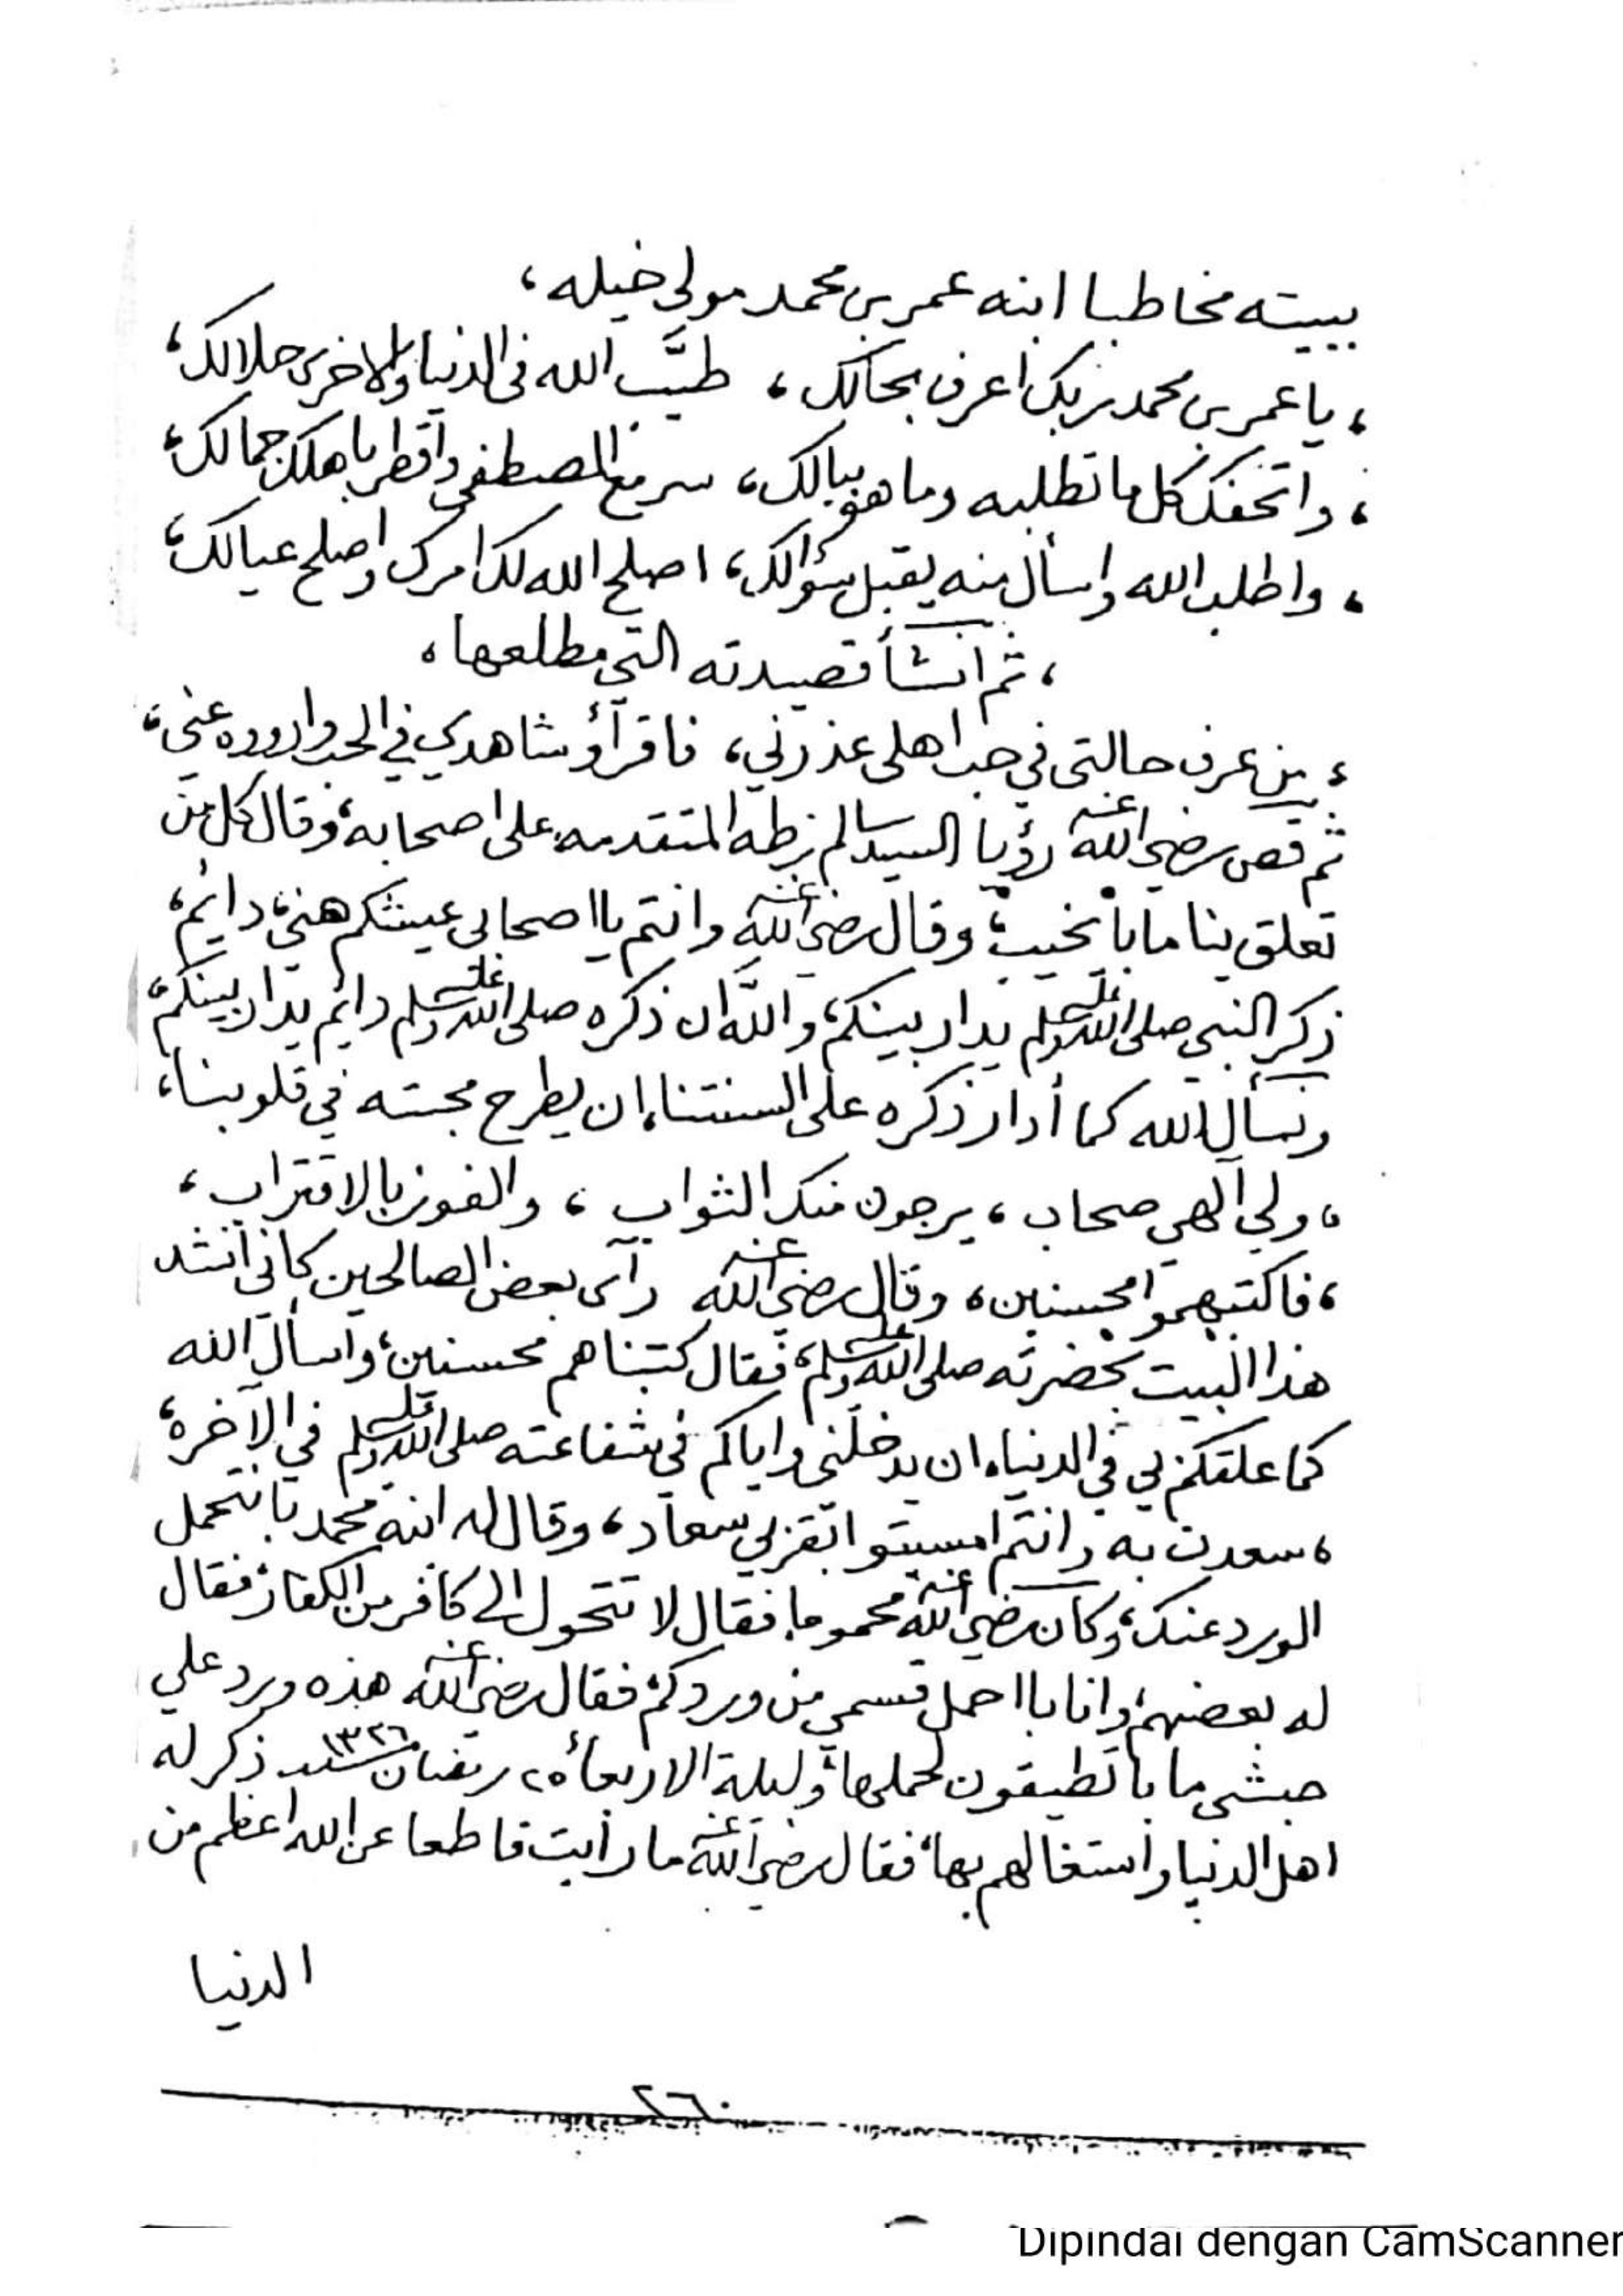 ببيته مخاطبا ابنه عمر بن محمد مولى خيله ،
، يا عمر بن محمد ربك اعرف بحالك ، طيَّب الله فى الدنيا والاخرى حلالك ،
، واتحفك كل ما تطلبه وما هو ببالك ، سر مع المصطفى واقطر باهلك جمالك ،
، واطلب الله واسأل منه يقبل سؤالك ، اصلح الله لك امرك واصلح عيالك ،
، ثم انشأ قصيدته التي مطلعها ،
، من عرف حالتى في حب اهلى عذرني ، فاقرأؤ شاهدي في الحب وارووه عني ،
ثم قص رضي الله عنه رؤيا السيد سالم بن طه المتقدمه على اصحابه ، وقال كل من
تعلق بنا ما بأ يخيب ، وقال رضي الله عنه وانتم يا اصحابي عيشكم هني ، دايم ،
ذكر النبي صلى الله عليه وسلم يدار بينكم ، والله ان ذكره صلى الله عليه وسلم دائم يدار بينكم ،
ونسأل الله كما أدار ذكره على السنتنا ، ان يطرح محبته في قلوبنا ،
، ولي الهي صحاب ، يرجون منك الثواب ، والفوز بالاقتراب ،
، فاكتبهموا محسنين ، وقال رضي الله عنه رآى بعض الصالحين كانى انشد
هذا البيت بحضرته صلى الله عليه وسلم ، فقال كتبناهم محسنين ، واسأل الله
كما علقكم بي في الدنيا ، ان يدخلني واياكم في شفاعته صلى الله عليه وسلم في الآخره ،
، سعدت به وانتم امسيتوا بقربي سعاد ، وقال له ابنه محمد با نتحمل
الورد عنك ، وكان رضي الله عنه محموما ، فقال لا تتحول الى كافر من الكفار ، فقال
له بعضهم ، وانا با احمل قسمي من وردكم ، فقال رضي الله عنه هذه ورد علي
حبشي ما با تطيقون لحملها ، وليلة الاربعاء ٢٥ رمضان سنة ١٣٢٦ ذكر له
اهل الدنيا واستغالهم بها ، فقال رضي الله عنه ما رأيت قاطعا عن الله اعظم من
الدنيا
٢٦٠
Dipindai dengan CamScanner